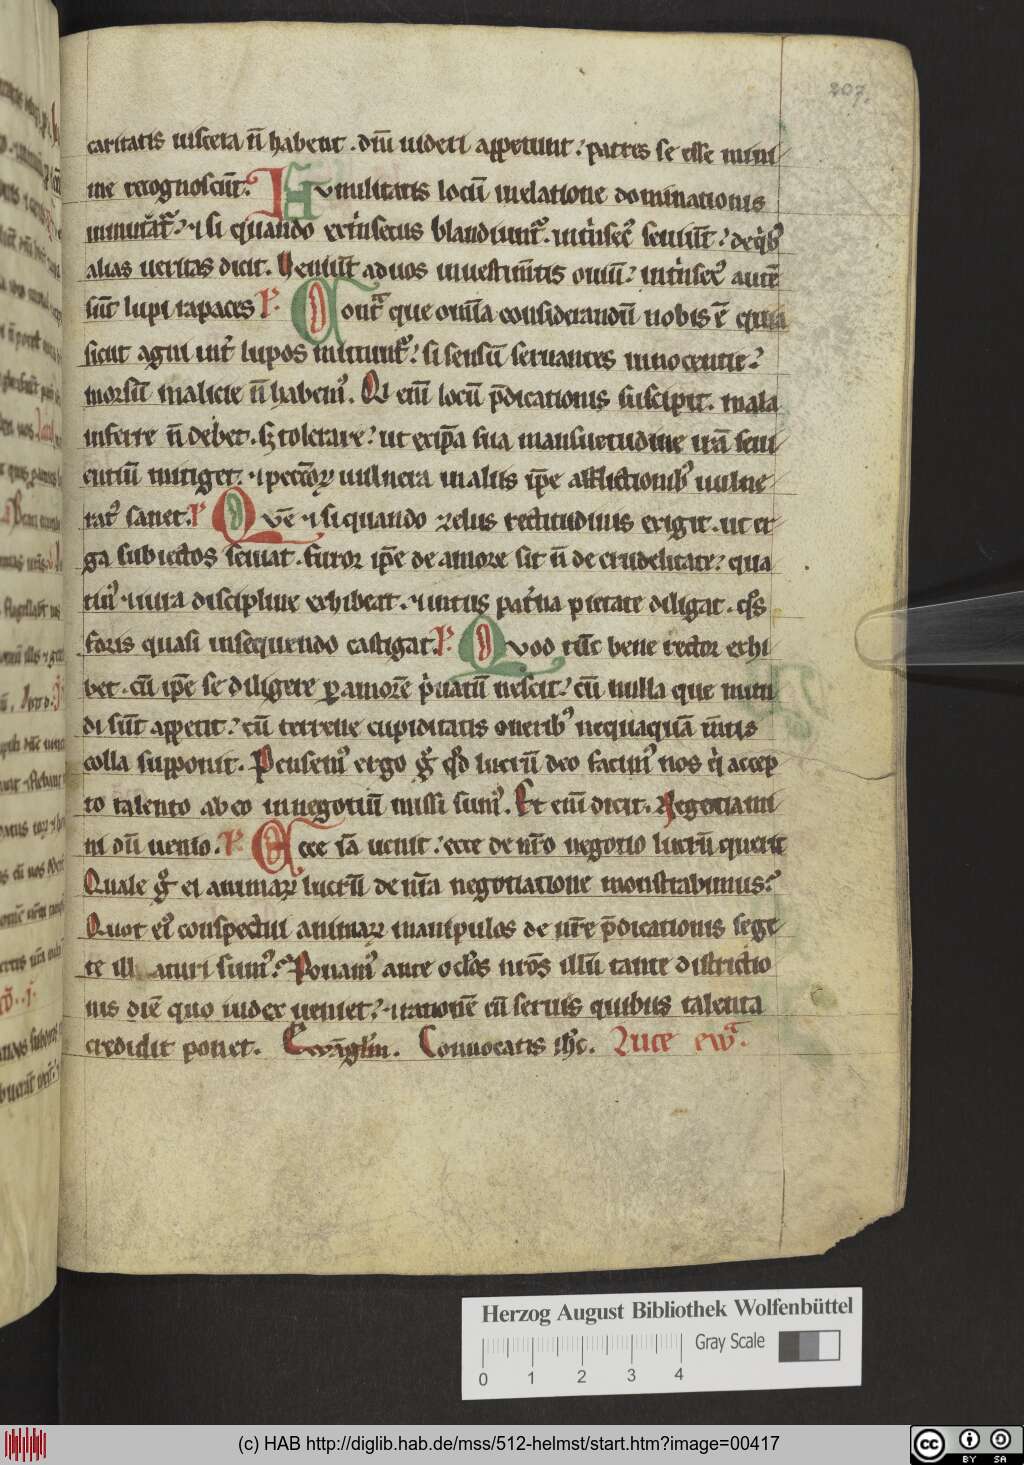 207.
caritatis uiscera n̄ habent . dn̄i uideri appetunt : patres se esse mini
me recognoscūt . Hvmilitatis locū in elatione dominationis
⁊ si quando blandiunt᷑ .
alias ueritas dicit . Veniūt ad uos in uestim̄tis ouiū : aut̄e
sūt lupi rapaces R᷑. Cont᷑ que om̄ia considerandū nobis ē quia
sicut agni int̓ lupos mittimur : si sensū seruantes innocentie :
morsū malicie n̄ habem᷒ . Q᷑ eni locū p̄dicationis suscipit . mala
inferre n̄ debet . tolerare : ut ex ip̄a sua mansuetudine irā seui
entiū mitiget . ⁊ peccatoꝝ uulnera in aliis ip̄e afflictionib᷒ uulne
rat᷒ sanet . R᷑ Qvē ⁊ si quando zelus rectitudinis exigit . ut er
ga subiectos seuiat . furor ip̄e de amore sit n̄ de crudelitate : qua
tin᷒ ⁊ iura discipline exhibeat . ⁊ intus pat̓na pietate diligat . q̄s
foris quasi insequendo castigat . R᷑. Qvod tūc bene rector exhi
bet . cū ip̄e se diligere ꝑ amorē p̓uatū nescit : cū nulla que mun
di sūt appetit : cū terrene cupiditatis onerib᷒ nequaquā m̄tis
colla supponit . Pensem᷒ ergo q̄d lucrū deo facim᷒ nos q̓ accep
to talento ab eo in negotiū missi sum᷒ . Et eni dicit . Negotiami
ni dū uenio . R᷑. Ecce iā uenit : ecce de nr̄o negotio lucrū querit
Quale g᷑ ei animaꝝ lucrū de nr̄a negotiatione monstrabimus :
Quot ei᷒ conspectui animaꝝ manipulos de nr̄e p̄dicationis sege
te ill aturi sum᷒ : Ponam᷒ ante oclo̅s nr̄os illū tante districtio
nis diē quo iudex ueniet : ⁊ rationē cū seruis quibus talenta
credidit ponet . Ewāgliu̅m . Conuocatis ih̄c . Luce ew᷑a.
Herzog August Bibliothek Wolfenbüttel
Gray Scale
0 1 2 3 4
(c) HAB http://diglib.hab.de/mss/512-helmst/start.htm?image=00417
cc BY SA